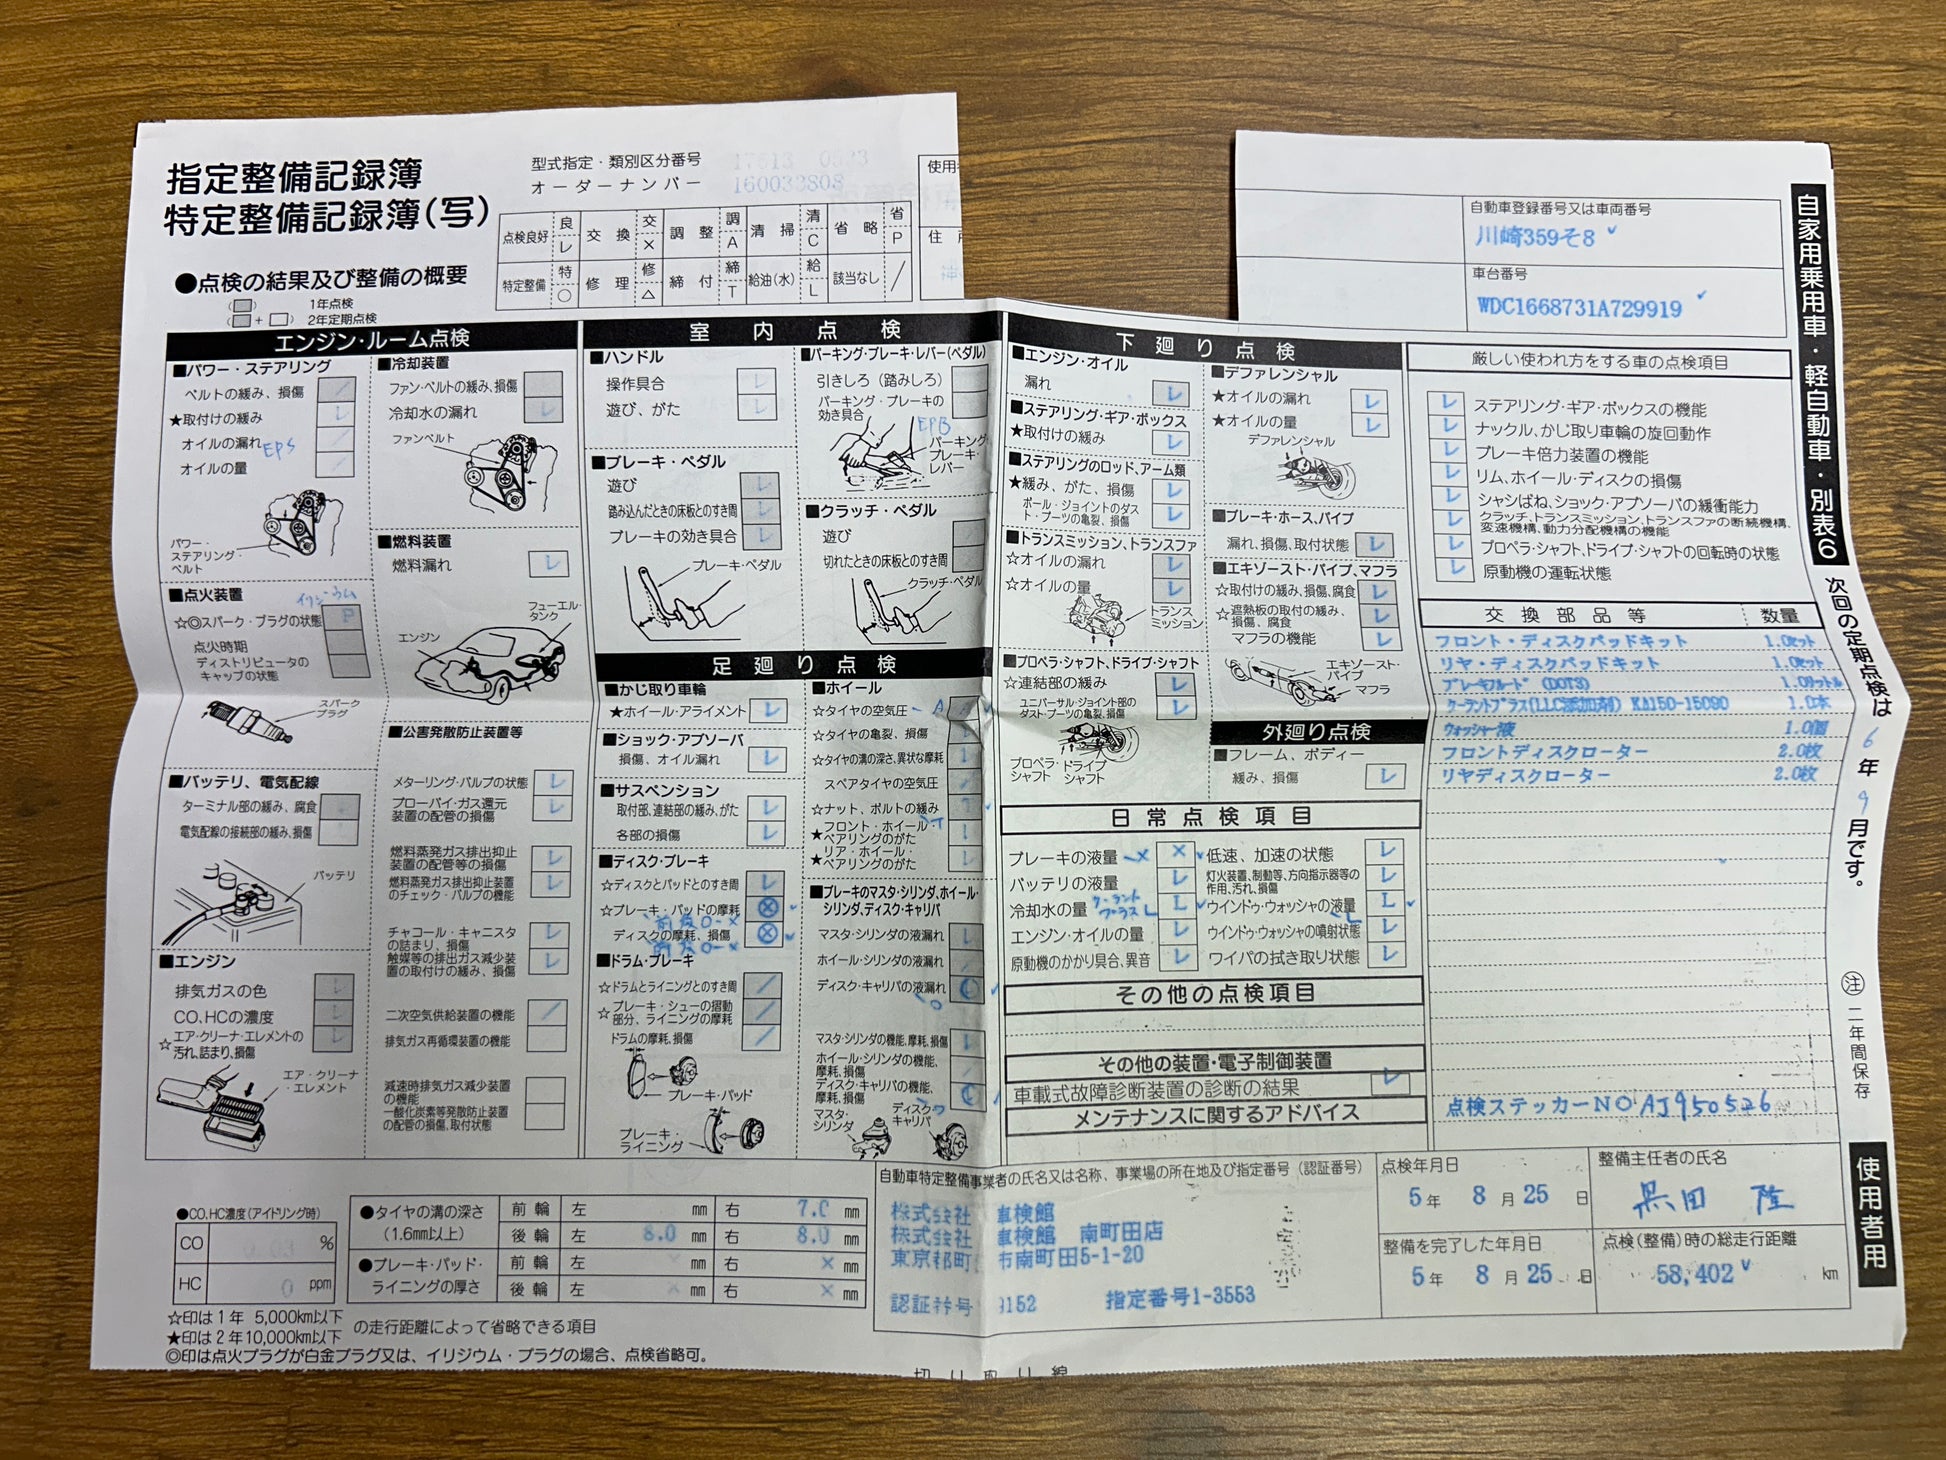 指定整備記録簿
特定整備記録簿(写)
型式指定・類別区分番号 17613 0533
オーダーナンバー 160033808
点検良好 良 レ 交換 交 × 調整 調 A 清掃 清 C 省略 省 P
特定整備 特 ○ 修理 修 △ 締付 締 T 給油(水) 給 L 該当なし /
使用
住
自動車登録番号又は車両番号
川崎359そ8
車台番号
WDC1668731A729919
自家用乗用車・軽自動車・別表6
次回の定期点検は 6年 9月です。
注 二年間保存
使用者用
●点検の結果及び整備の概要
( ) 1年点検
( + ) 2年定期点検
エンジン・ルーム点検
■パワー・ステアリング
ベルトの緩み、損傷
★取付けの緩み
オイルの漏れ EPS
オイルの量
パワー・ステアリング・ベルト
■点火装置
イリジウム
☆◎スパーク・プラグの状態 P
点火時期
ディストリビュータのキャップの状態
スパークプラグ
■バッテリ、電気配線
ターミナル部の緩み、腐食
電気配線の接続部の緩み、損傷
バッテリ
■エンジン
排気ガスの色
CO、HCの濃度
☆エア・クリーナ・エレメントの汚れ、詰まり、損傷
エア・クリーナ・エレメント
■冷却装置
ファン・ベルトの緩み、損傷
冷却水の漏れ
ファンベルト
■燃料装置
燃料漏れ
フューエル・タンク
エンジン
■公害発散防止装置等
メターリング・バルブの状態
ブローバイ・ガス還元装置の配管の損傷
燃料蒸発ガス排出抑止装置の配管等の損傷
燃料蒸発ガス排出抑止装置のチェック・バルブの機能
チャコール・キャニスタの詰まり、損傷
触媒等の排出ガス減少装置の取付けの緩み、損傷
二次空気供給装置の機能
排気ガス再循環装置の機能
減速時排気ガス減少装置の機能
一酸化炭素等発散防止装置の配管の損傷、取付状態
室内点検
■ハンドル
操作具合
遊び、がた
■ブレーキ・ペダル
遊び
踏み込んだときの床板とのすき間
ブレーキの効き具合
ブレーキ・ペダル
■パーキング・ブレーキ・レバー(ペダル)
引きしろ(踏みしろ)
パーキング・ブレーキの効き具合
EPB
パーキング・ブレーキ・レバー
■クラッチ・ペダル
遊び
切れたときの床板とのすき間
クラッチ・ペダル
足廻り点検
■かじ取り車輪
★ホイール・アライメント
■ショック・アブソーバ
損傷、オイル漏れ
■サスペンション
取付部、連結部の緩み、がた
各部の損傷
■ディスク・ブレーキ
☆ディスクとパッドとのすき間
☆ブレーキ・パッドの摩耗
ディスクの摩耗、損傷
■ドラム・ブレーキ
☆ドラムとライニングとのすき間
☆ブレーキ・シューの摺動部分、ライニングの摩耗
ドラムの摩耗、損傷
ブレーキ・パッド
ブレーキ・ライニング
■ホイール
☆タイヤの空気圧
☆タイヤの亀裂、損傷
☆タイヤの溝の深さ、異状な摩耗
スペアタイヤの空気圧
☆ナット、ボルトの緩み
★フロント・ホイール・ベアリングのがた
★リア・ホイール・ベアリングのがた
■ブレーキのマスタ・シリンダ、ホイール・シリンダ、ディスク・キャリパ
マスタ・シリンダの液漏れ
ホイール・シリンダの液漏れ
ディスク・キャリパの液漏れ
マスタ・シリンダの機能、摩耗、損傷
ホイール・シリンダの機能、摩耗、損傷
ディスク・キャリパの機能、摩耗、損傷
マスタ・シリンダ
ディスク・キャリパ
下廻り点検
■エンジン・オイル
漏れ
■ステアリング・ギア・ボックス
★取付けの緩み
■ステアリングのロッド、アーム類
★緩み、がた、損傷
ボール・ジョイントのダスト・ブーツの亀裂、損傷
■トランスミッション、トランスファ
☆オイルの漏れ
☆オイルの量
トランスミッション
■プロペラ・シャフト、ドライブ・シャフト
☆連結部の緩み
ユニバーサル・ジョイント部のダスト・ブーツの亀裂、損傷
プロペラ・シャフト ドライブ・シャフト
■デファレンシャル
★オイルの漏れ
★オイルの量
デファレンシャル
■ブレーキ・ホース、パイプ
漏れ、損傷、取付状態
■エキゾースト・パイプ、マフラ
☆取付けの緩み、損傷、腐食
☆遮熱板の取付の緩み、損傷、腐食
マフラの機能
エキゾースト・パイプ
マフラ
外廻り点検
■フレーム、ボディー
緩み、損傷
日常点検項目
ブレーキの液量 ×
バッテリの液量
冷却水の量 クーラントプラス L
エンジン・オイルの量
原動機のかかり具合、異音
低速、加速の状態
灯火装置、制動等、方向指示器等の作用、汚れ、損傷
ウインドゥ・ウォッシャの液量 L
ウインドゥ・ウォッシャの噴射状態
ワイパの拭き取り状態
その他の点検項目
その他の装置・電子制御装置
車載式故障診断装置の診断の結果
メンテナンスに関するアドバイス
厳しい使われ方をする車の点検項目
ステアリング・ギア・ボックスの機能
ナックル、かじ取り車輪の旋回動作
ブレーキ倍力装置の機能
リム、ホイール・ディスクの損傷
シャシばね、ショック・アブソーバの緩衝能力
クラッチ、トランスミッション、トランスファの断続機構、変速機構、動力分配機構の機能
プロペラ・シャフト、ドライブ・シャフトの回転時の状態
原動機の運転状態
交換部品等 数量
フロント・ディスクパッドキット 1.0セット
リヤ・ディスクパッドキット 1.0セット
ブレーキフルード (DOT3) 1.0リットル
クーラントプラス(LLC添加剤) KA150-15090 1.0本
ウォッシャー液 1.0個
フロントディスクローター 2.0枚
リヤディスクローター 2.0枚
点検ステッカーNO AJ950526
●CO、HC濃度(アイドリング時)
CO 0.03 %
HC 0 ppm
●タイヤの溝の深さ(1.6mm以上)
前輪 左 mm 右 7.0 mm
後輪 左 8.0 mm 右 8.0 mm
●ブレーキ・パッド・ライニングの厚さ
前輪 左 × mm 右 × mm
後輪 左 × mm 右 × mm
☆印は1年 5,000km以下
★印は2年10,000km以下 の走行距離によって省略できる項目
◎印は点火プラグが白金プラグ又は、イリジウム・プラグの場合、点検省略可。
自動車特定整備事業者の氏名又は名称、事業場の所在地及び指定番号(認証番号)
株式会社 車検館
株式会社 車検館 南町田店
東京都町 市南町田5-1-20
認証番号 9152 指定番号1-3553
点検年月日
5年 8月25日
整備を完了した年月日
5年 8月25日
整備主任者の氏名
黒田 隆
点検(整備)時の総走行距離
58,402 km
切り取り線